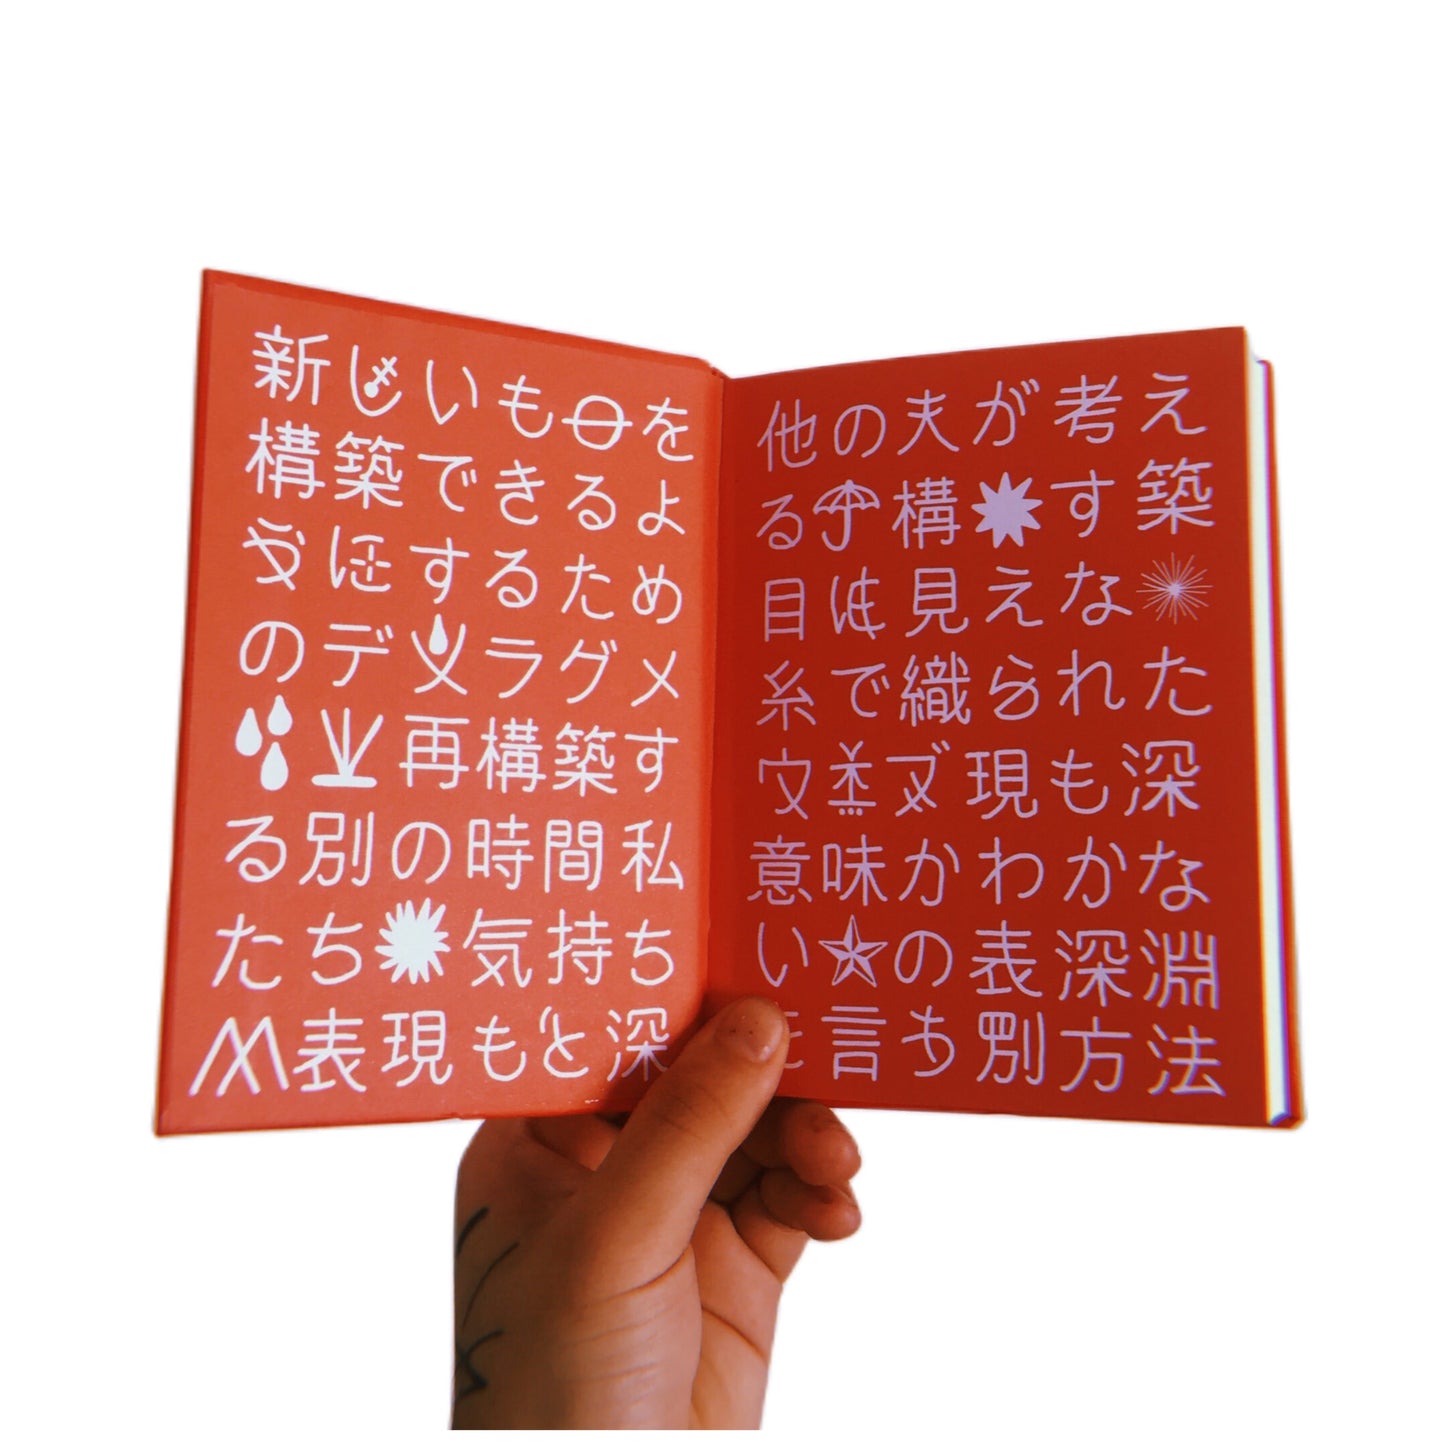 新しいも を
構築できるよ
にするため
のデ ラグメ
再構築す
る別の時間私
たち 気持ち
表現もと深
他の が考え
る 構 す築
目 見えな
糸で織られた
現も深
意味かわかな
い の表深淵
言 別方法